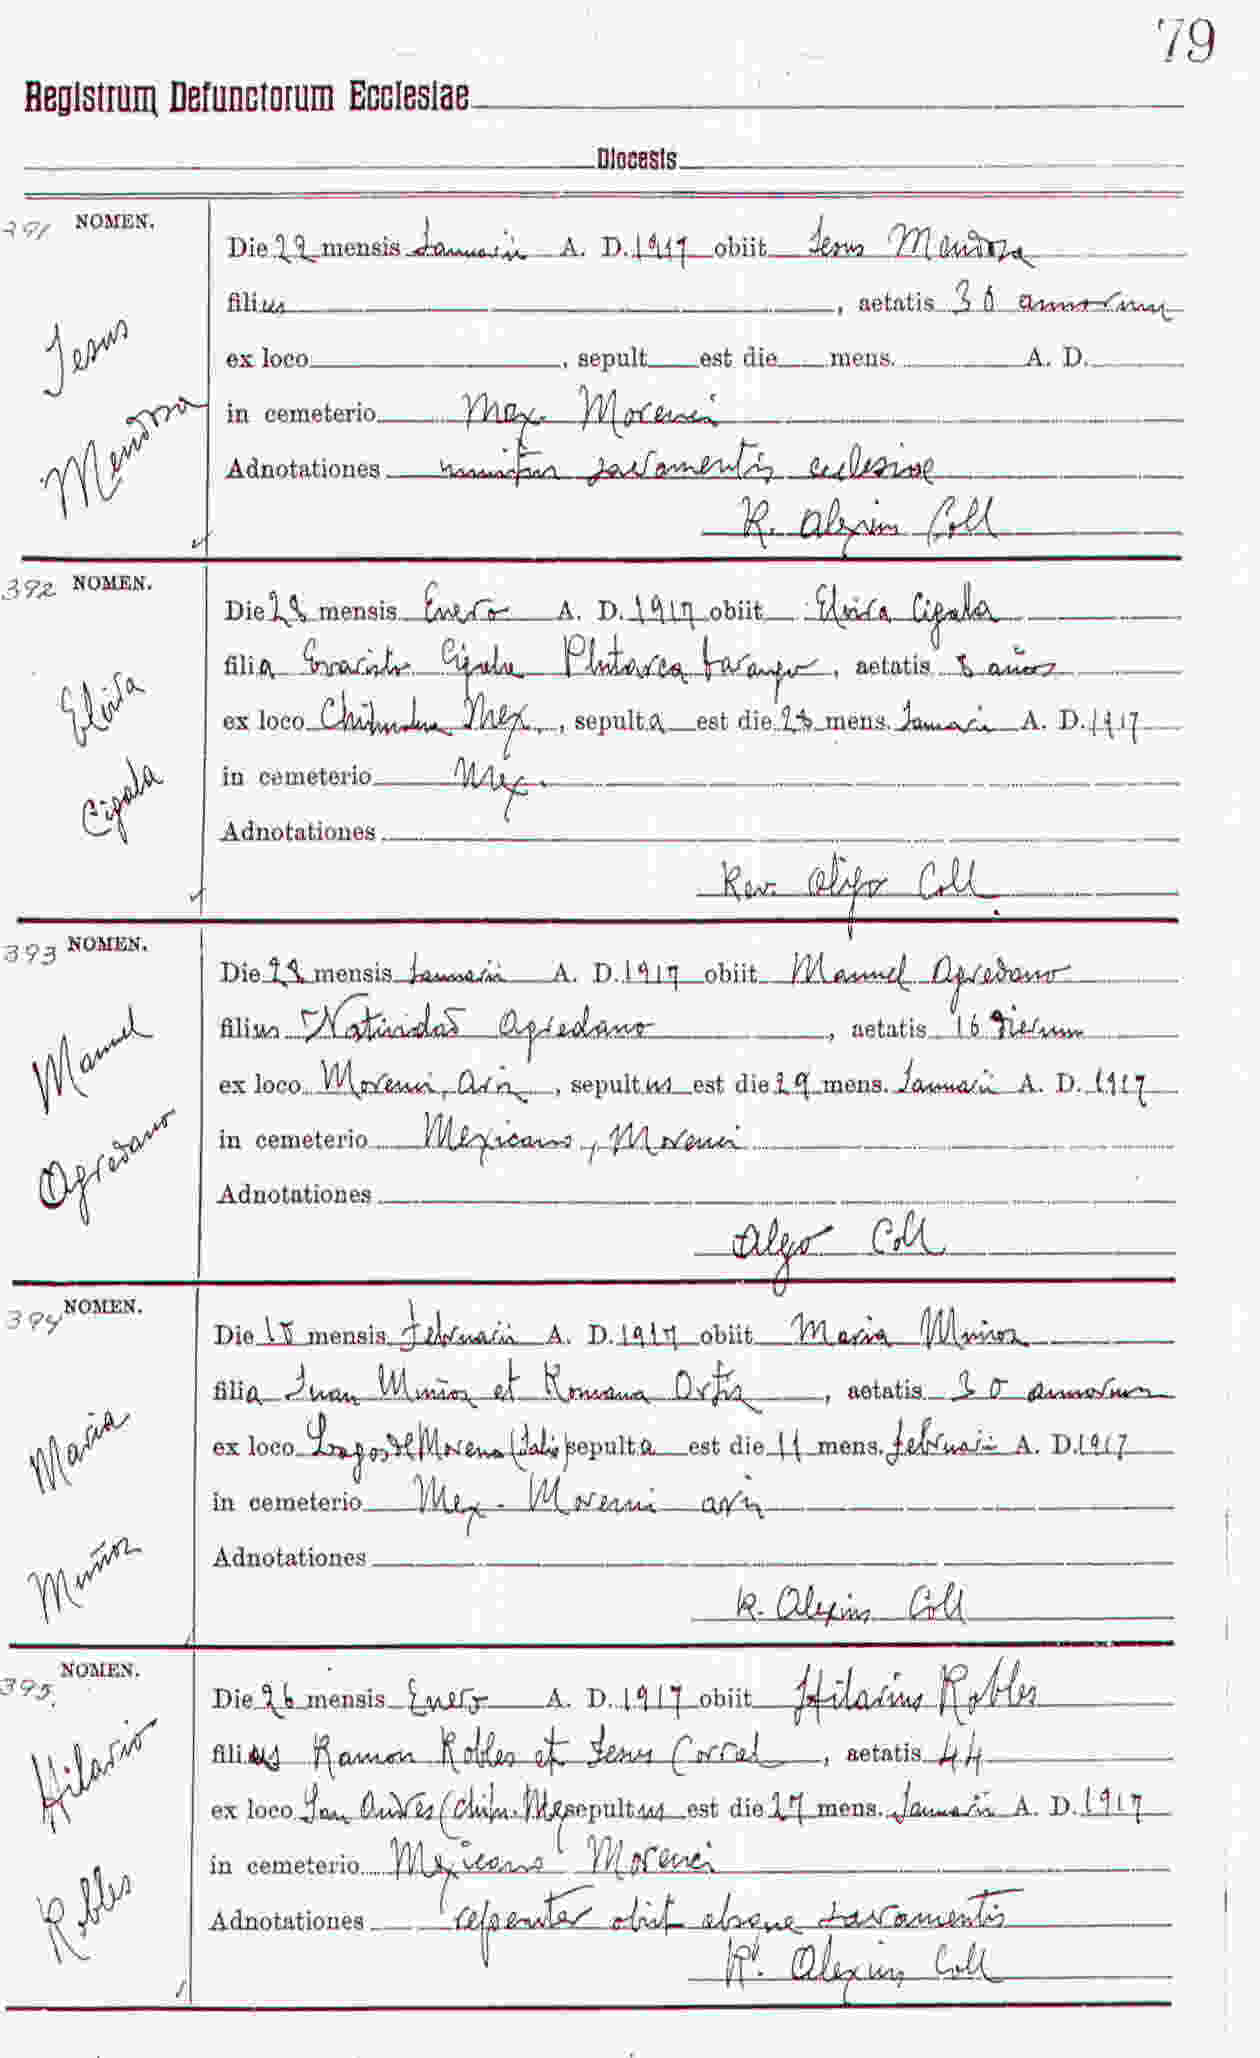 79
Registrum Defunctorum Ecclesiae
Diocesis
391 NOMEN.
Jesus
Mendoza
Die 22 mensis Januarii A. D. 1917 obiit Jesus Mendoza
filius , aetatis 30 annorum
ex loco , sepult est die mens. A. D.
in cemeterio Mex. Morenci
Adnotationes munitus sacramentis ecclesiae
R. Alexius Coll
392 NOMEN.
Elvira
Cigala
Die 28 mensis Enero A. D. 1917 obiit Elvira Cigala
filia Evaristo Cigala Plutarca , aetatis 8 años
ex loco Chihuahua Mex. , sepulta est die 28 mens. Januarii A. D. 1917
in cemeterio Mex.
Adnotationes
Rev. Coll
393 NOMEN.
Manuel
Agredano
Die 28 mensis Januarii A. D. 1917 obiit Manuel Agredano
filius Natividad Agredano , aetatis 16 dierum
ex loco Morenci, Ariz , sepultus est die 29 mens. Januarii A. D. 1917
in cemeterio Mexicano, Morenci
Adnotationes
Coll
394 NOMEN.
Maria
Muñoz
Die mensis Februarii A. D. 1917 obiit Maria Muñoz
filia Juan Muñoz et Romana Ortiz , aetatis 30 annorum
ex loco Lagos de Moreno (Jalis) sepulta est die 11 mens. februarii A. D. 1917
in cemeterio Mex. Morenci ariz
Adnotationes
R. Alexius Coll
395. NOMEN.
Hilario
Robles
Die 26 mensis Enero A. D. 1917 obiit Hilarius Robles
filius Ramon Robles et Jesus Corral , aetatis 44
ex loco San Andres (Chih. Mex sepultus est die 27 mens. Januarii A. D. 1917
in cemeterio Mexicano Morenci
Adnotationes repenter obiit absque sacramentis
R. Alexius Coll